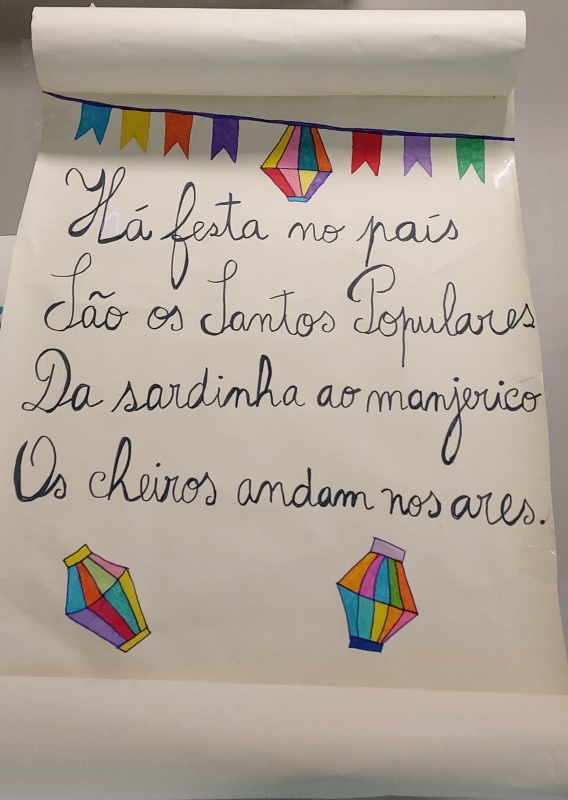 Há festa no país
São os Santos Populares
Da sardinha ao manjerico
Os cheiros andam nos ares.